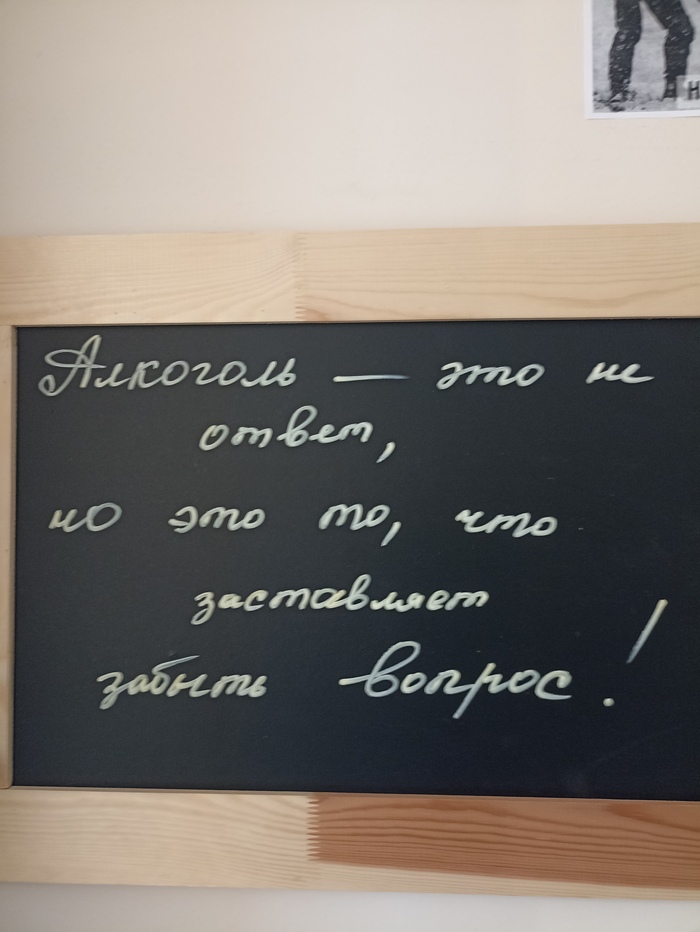 Н
Алкоголь — это не
ответ,
но это то, что
заставляет
забыть вопрос!